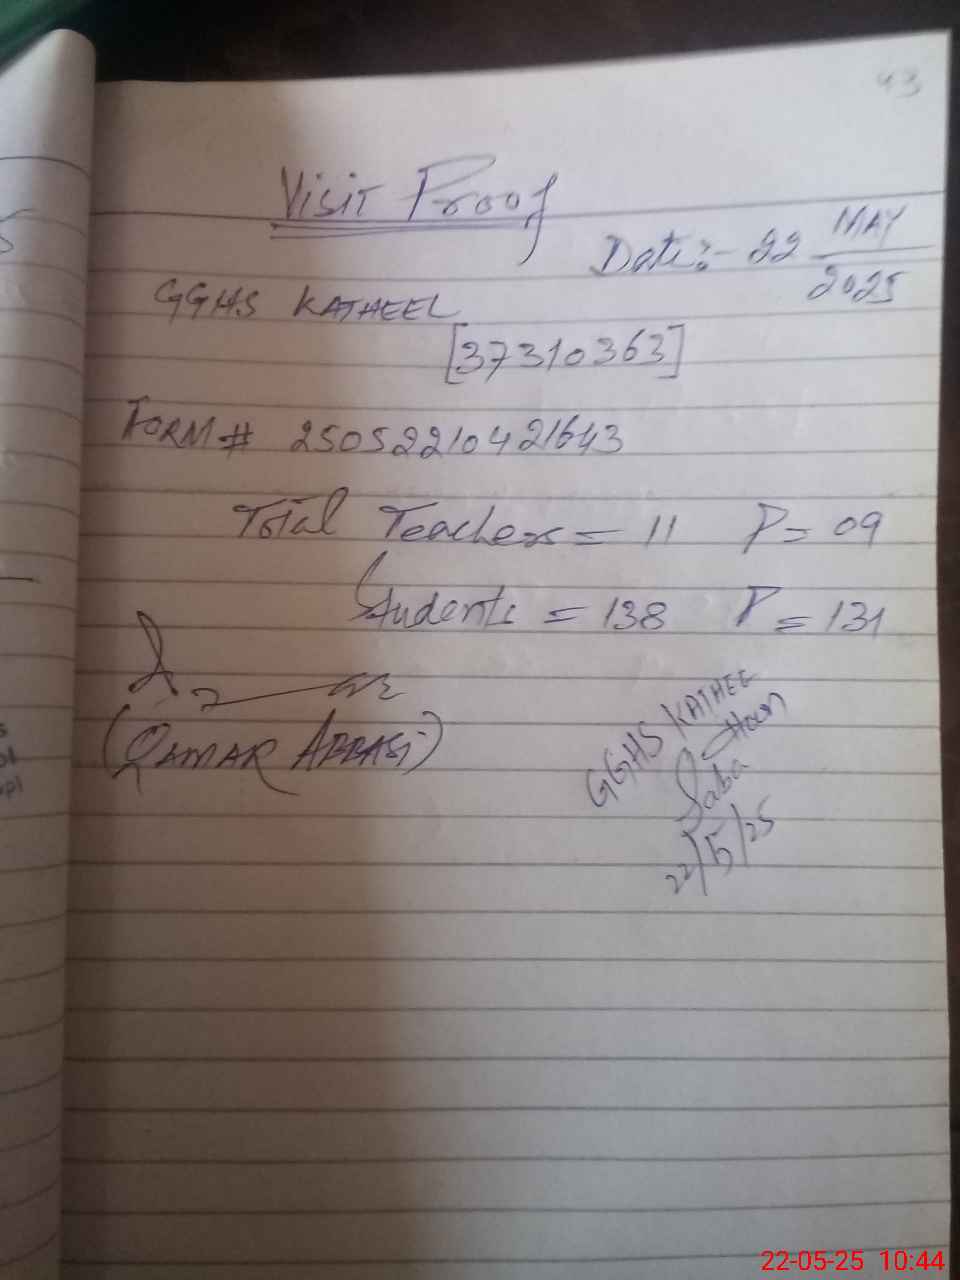 43
Visit Proof
Date:- 22 MAY
2025
GGHS KATHEEL
[37310363]
FORM# 25052210421643
Total Teachers = 11 P = 09
Students = 138 P = 131
(QAMAR ABBASI)
GGHS KATHEE
Saba
22/5/25
22-05-25 10:44